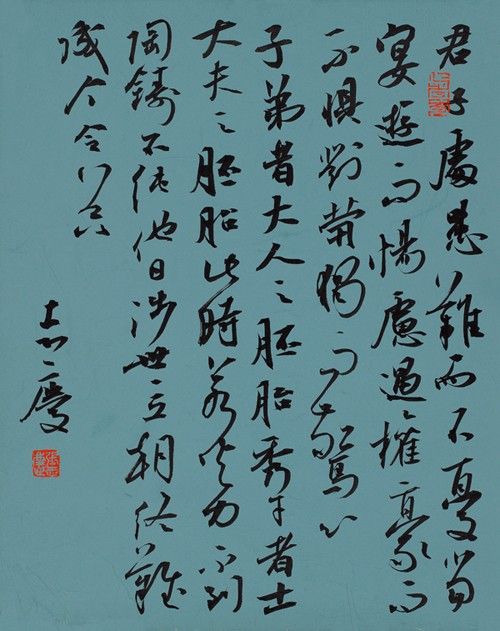 君子處患難而不憂當
宴遊而惕慮遇權豪而
不惧對煢獨而驚心
子弟者大人之胚胎秀才者士
大夫之胚胎此時若火力不到
陶鑄不純他日涉世立朝終難
成个令器